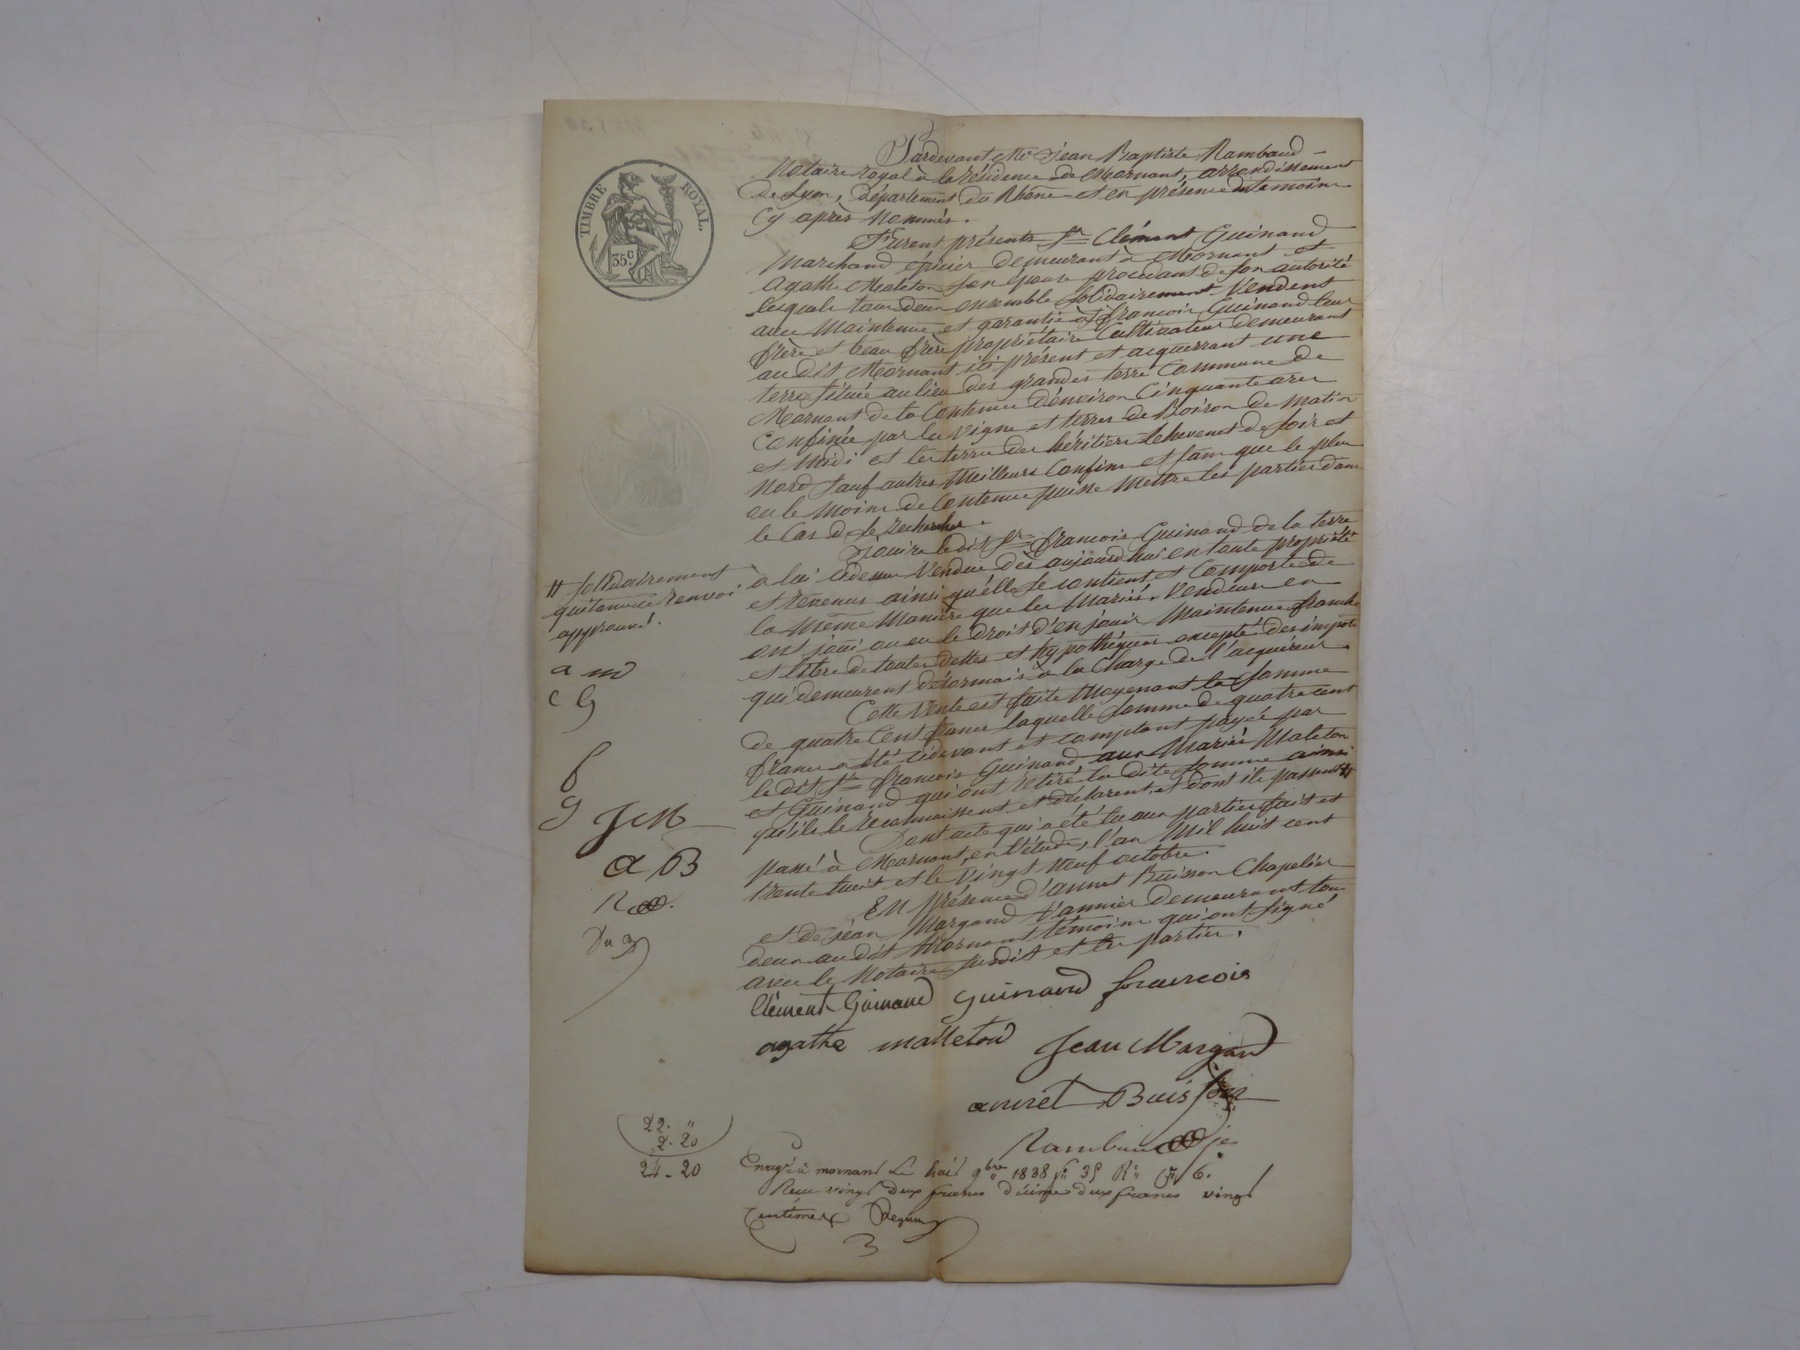 TIMBRE ROYAL.
35c.
Pardevant Me Jean Baptiste Rambaud
Notaire royal à la résidence de Mornant, arrondissement
de Lyon, département du Rhône et en présence de temoins
Cy après Nommés.
Furent présents Sr Clément Guinand
Marchand épicier demeurant à Mornant et
Agathe Maleton son épouse procedant de son autorité
lesquels tous deux ensemble solidairement Vendent
avec Maintenue et garantie à Sr françois Guinand leur
frère et beau frère propriétaire Cultivateur demeurant
au dit Mornant ici présent et acquerrant une
terre située au lieu des grandes terre Commune de
Mornant de la Contenue d'environ Cinquante ares
Confinée par la vigne et terres de Boiron de Matin
et Midi et les terres des héritiers de soir et
Nord sauf autres Meilleurs Confins et sans que le plus
ou le Moins de Contenue puisse Mettre les parties dans
le Cas de se rechercher.
Jouira le dit Sr françois Guinand de la terre
à lui cidessus Vendue dès aujourd'hui en toute propriété
et revenus ainsi qu'elle se contient et Comporte de
la Même Manière que les Mariés Vendeurs en
ont joui ou eu le droit d'en jouir Maintenue franche
et libre de toutes dettes et hypothéques excepté des impots
qui demeurent désormais à la Charge de l'acquéreur.
Cette Vente est faite Moyenant la somme
de quatre Cent francs laquelle somme de quatre cent
francs a été cidevant et comptant payée par
le dit Sr françois Guinand aux Mariés Maleton
et Guinand qui ont retiré la dite somme ainsi
qu'ils le reconnaissent et déclarent, et dont ils passent #
Dont acte qui a été lu aux parties fait et
passé à Mornant, en l'étude, l'an Mil huit cent
trente huit et le vingt Neuf octobre.
En présence d'annet Buisson Chapelier
et de jean Margand Vannier demeurant tous
deux au dit Mornant témoins qui ont signé
avec le Notaire susdit et les parties.
# solidairement
quitance renvoi
approuvé.
a m
c G
f
g J M
a B
R
Clément Guinand guinand francois
agathe malleton Jean Margand
annet Buisson
Rambaud
22. "
2. 20
24 - 20
Enregé à mornant le huit 9bre 1838 fo 35 Ro C 6.
Recu vingt deux francs dixime deux francs vingt
centimes